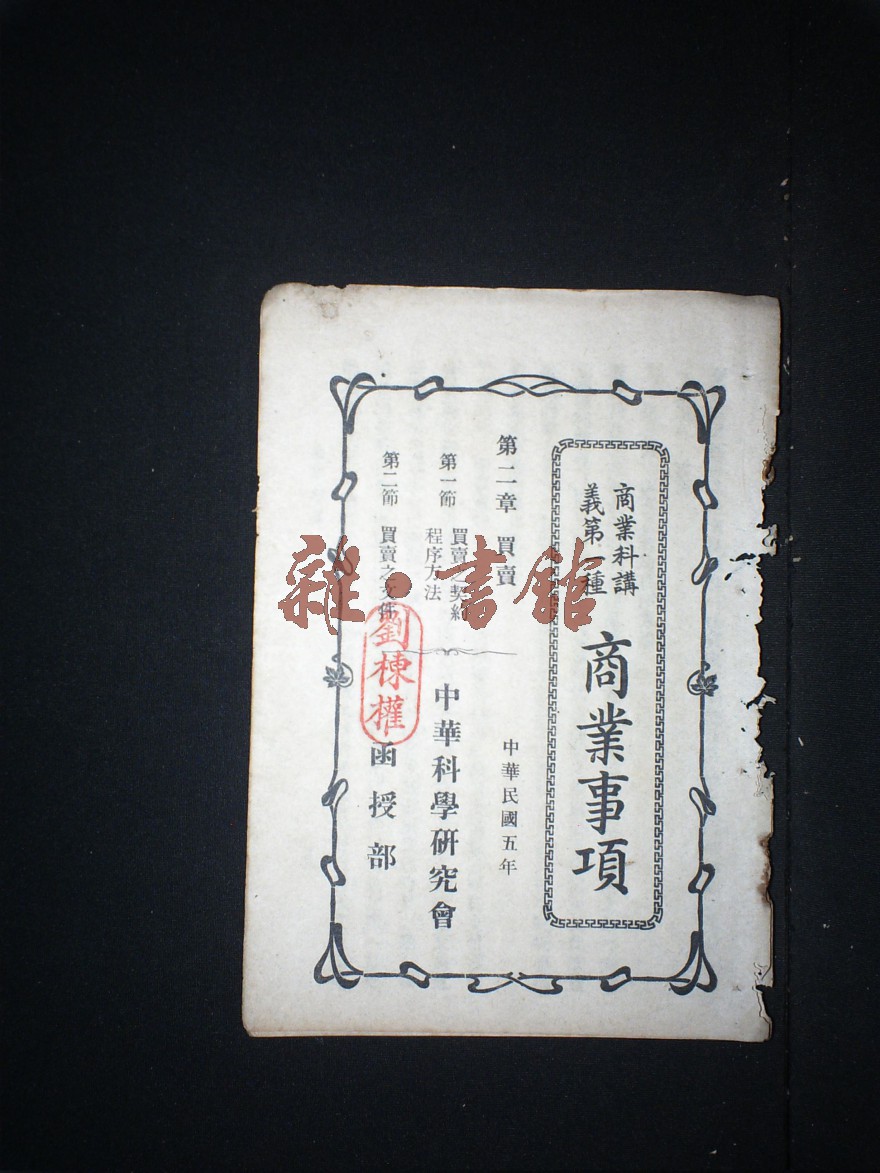 商業科講
義第一種
商業事項
第二章 買賣
中華民國五年
第一節 買賣之契約
程序方法
中華科學研究會
第二節 買賣之文件
函授部
劉棟權
雜·書館